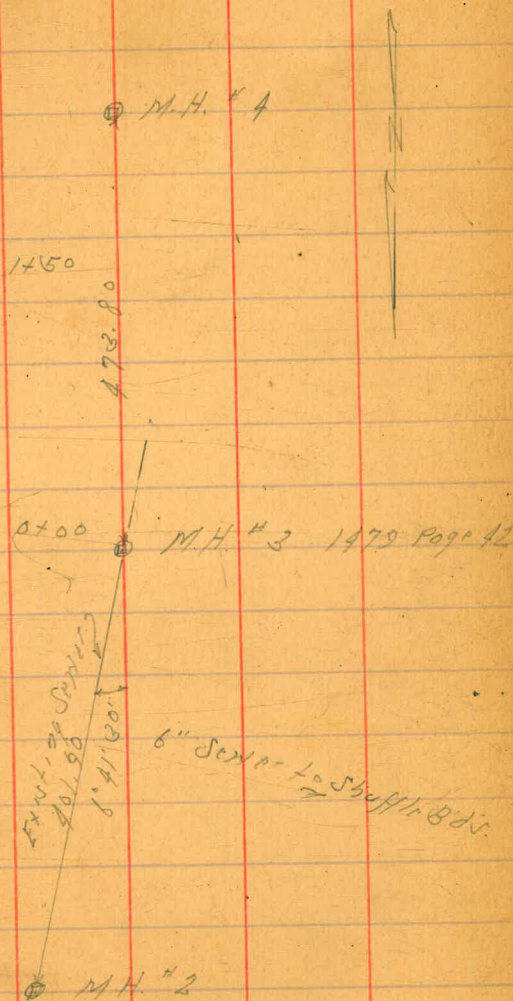 M.H. # 4
N
1+50
473.80
0+00
M.H. # 3 1479 Page 42
Existing Sewer
401.90
6" Sewer to Shuffle Bds.
M.H. # 2